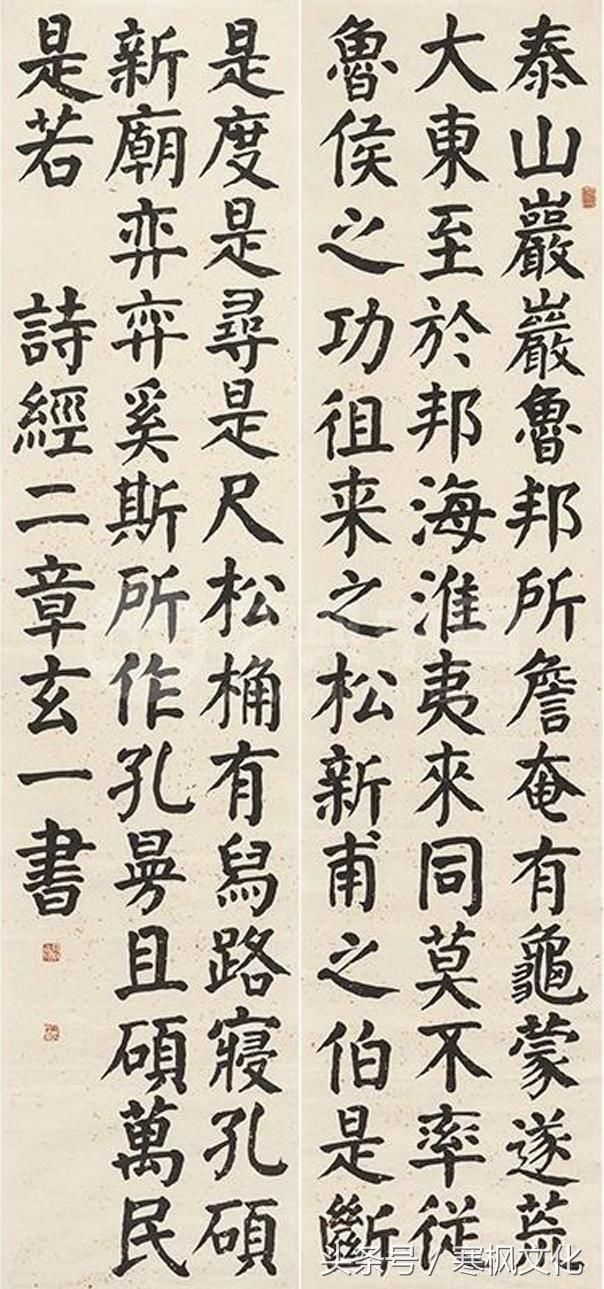 泰山巖巖魯邦所詹奄有龜蒙遂荒
大東至於邦海淮夷來同莫不率従
魯侯之功徂来之松新甫之伯是斷
是度是尋是尺松桷有舄路寢孔碩
新廟弈弈奚斯所作孔曼且碩萬民
是若 詩經二章玄一書
头条号 / 寒枫文化